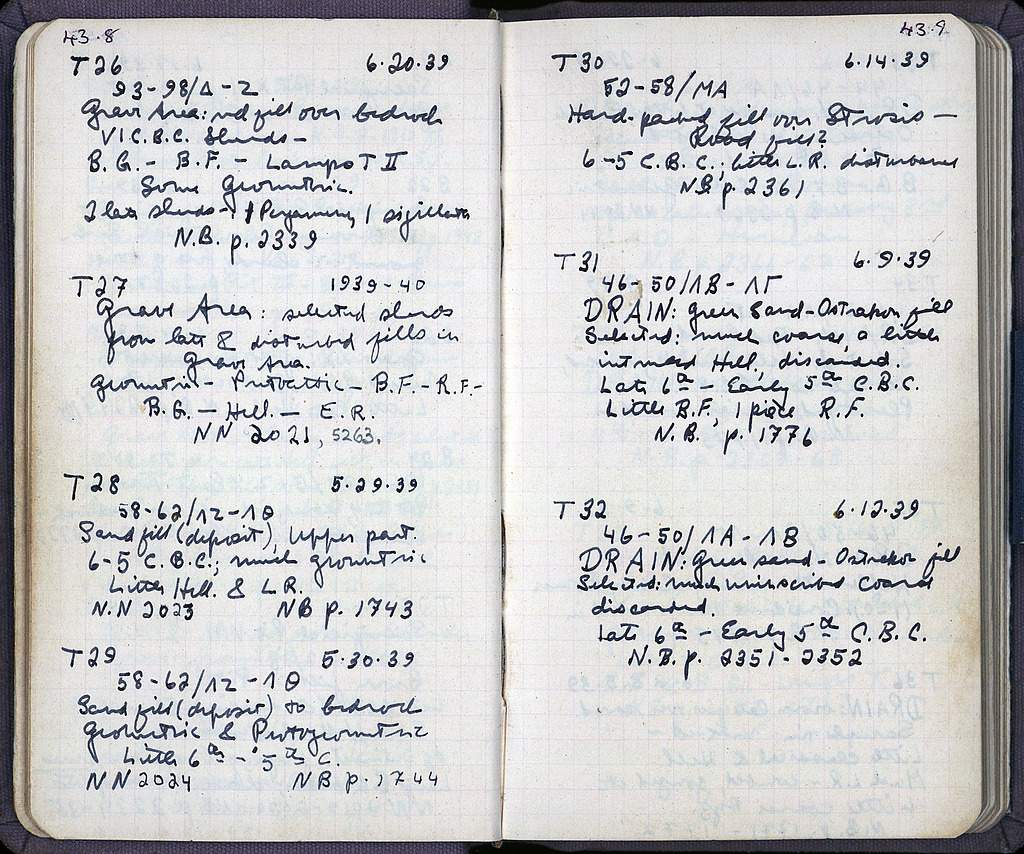 43.8
T 26 6.20.39
93-98/Δ-Z
Grave Area: red fill over bedrock
VI C.B.C. sherds-
B.G. - B.F. - Lamps T II
Some Geometric.
2 late sherds - 1 Pergamene, 1 sigillata
N.B. p. 2339
T 27 1939-40
Grave Area: selected sherds
from late & disturbed fills in
Grave Area.
Geometric - Protoattic - B.F. - R.F. -
B.G. - Hell. - E.R.
NN 2021, 5263.
T 28 5.29.39
58-62/ΙΖ-ΙΘ
Sand fill (deposit), upper part.
6-5 C.B.C.; much geometric
Little Hell. & L.R.
N.N 2023 NB p. 1743
T 29 5.30.39
58-62/ΙΖ-ΙΘ
Sand fill (deposit) to bedrock
Geometric & Protogeometric
Little 6th - 5th C.
NN 2024 N.B. p. 1744
43.9
T 30 6.14.39
52-58/ΜΑ
Hard-packed fill over Strosis -
Road fill?
6-5 C.B.C.; little L.R. disturbance
N.B. p. 2361
T 31 6.9.39
46-50/ΙΒ-ΙΓ
DRAIN: Green Sand-Ostrakon fill
Selected: much coarse, a little
intrused Hell, discarded.
Late 6th - Early 5th C.B.C.
Little B.F., 1 piece R.F.
N.B., p. 1776
T 32 6.12.39
46-50/ΙΑ-ΙΒ
DRAIN: Green sand-Ostrakon fill
Selected: much uninscribed coarse
discarded.
Late 6th - Early 5th C.B.C.
N.B. p. 2351-2352